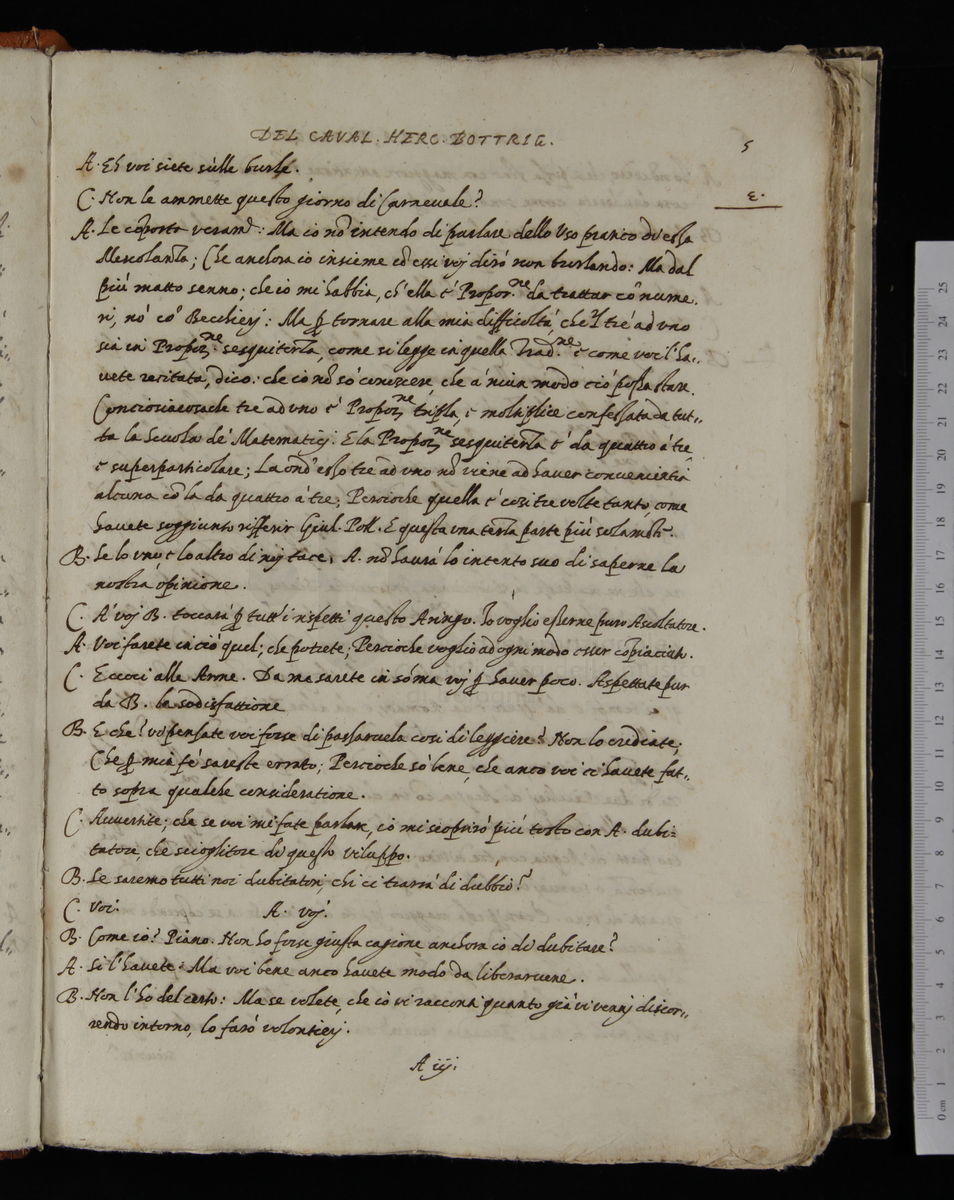 DEL CAVAL. HERC. BOTTRIG.
5
A. Eh voi siete sùlle burle.
ε.
C. Non le ammette questo giorno di Carnevale?
A. Le cõporto veram.: Ma io nõ intendo di parlare dello Uso pratico di essa
Mescolanza; Che anchora io insieme cõ essi voj dirò non burlando: Ma dal
più matto senno; che io mi habbia, ch'ella è Propor.ne da trattar cõ nume,
ri, nò cõ Becchierj: Ma ꝑ tornare alla mia difficoltà, che'l tré ad uno
sia in Propor.ne sesquiterza, come si legge in quella Trad.ne e come voi l'ha,,
vete recitata, dico: che io nõ sò conoscere, che à niun modo ciò possa stare.
Conciosiacosache tre ad uno è Propor.ne tripla, e moltiplice confessata da tut,,
ta la Scuola de' Matematicj. E la Propor.ne sesquiterza è da quattro à tre
e superparticolare; La onď esso tre ad uno nõ viene ad haver convenientia
alcuna cõ la da quattro à tre; Percioche quella è cosi tre volte tanto, come
havete soggiunto rifferir Giul. Poll. E questa una terza parte più solam.te.
B. Se lo uno, e lo altro di noj tace, A. nõ haurà lo intento suo di saperne la
nostra opinione.
C. A' voj B. toccarà ꝑ tutt'i rispetti questo Aringo. Io voglio esserne puro Ascoltatore.
A. Voi farete in ciò quel; che potrete; Percioche voglio ad ogni modo esser cõpiaciuto.
C. Eccoci alle Arme. Da me sarete in sõma voj ꝑ haver poco. Aspettate pur
da B. la sodisfattione
B. E che? vi pensate voi forse di passarvela cosi di leggiere? Non lo crediate;
Che ꝑ mia fè sareste errato; Percioche sò bene, che anco voi ci havete fat,,
to sopra qualche consideratione.
C. Avvertite; che se voi mi fate parlare, io mi scoprirò più tosto con A. dubi-
tatore, che scioglitore di questo viluppo.
B. Se saremo tutti noi dubitatori, chi ci trarrà di dubbio?
C. Voi. A. voj.
B. Come io? Piano. Non ho forse giusta cagione anchora io di dubitare?
A. Si l'havete: Ma voi bene anco havete modo da liberarvene.
B. Non l'hò del certo: Ma se volete, che io vi racconti quanto già vi venni discor,,
rendo intorno, lo farò volontierj.
A iij.